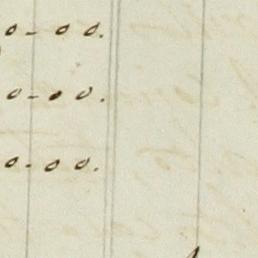 0 - 0 0.
0 - 0 0.
0 - 0 0.